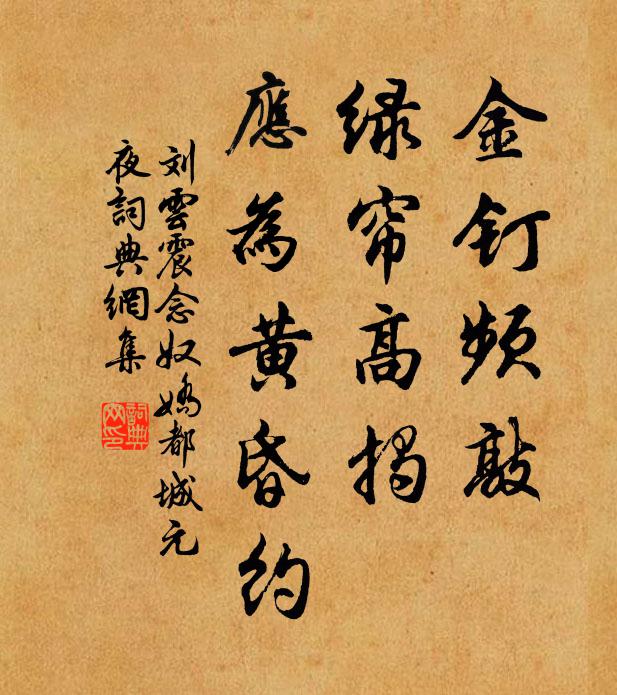 金钉频敲
绿帘高揭
應為黄昏約
刘雲震念奴嬌都城元
夜詞典網集
詞典
网印